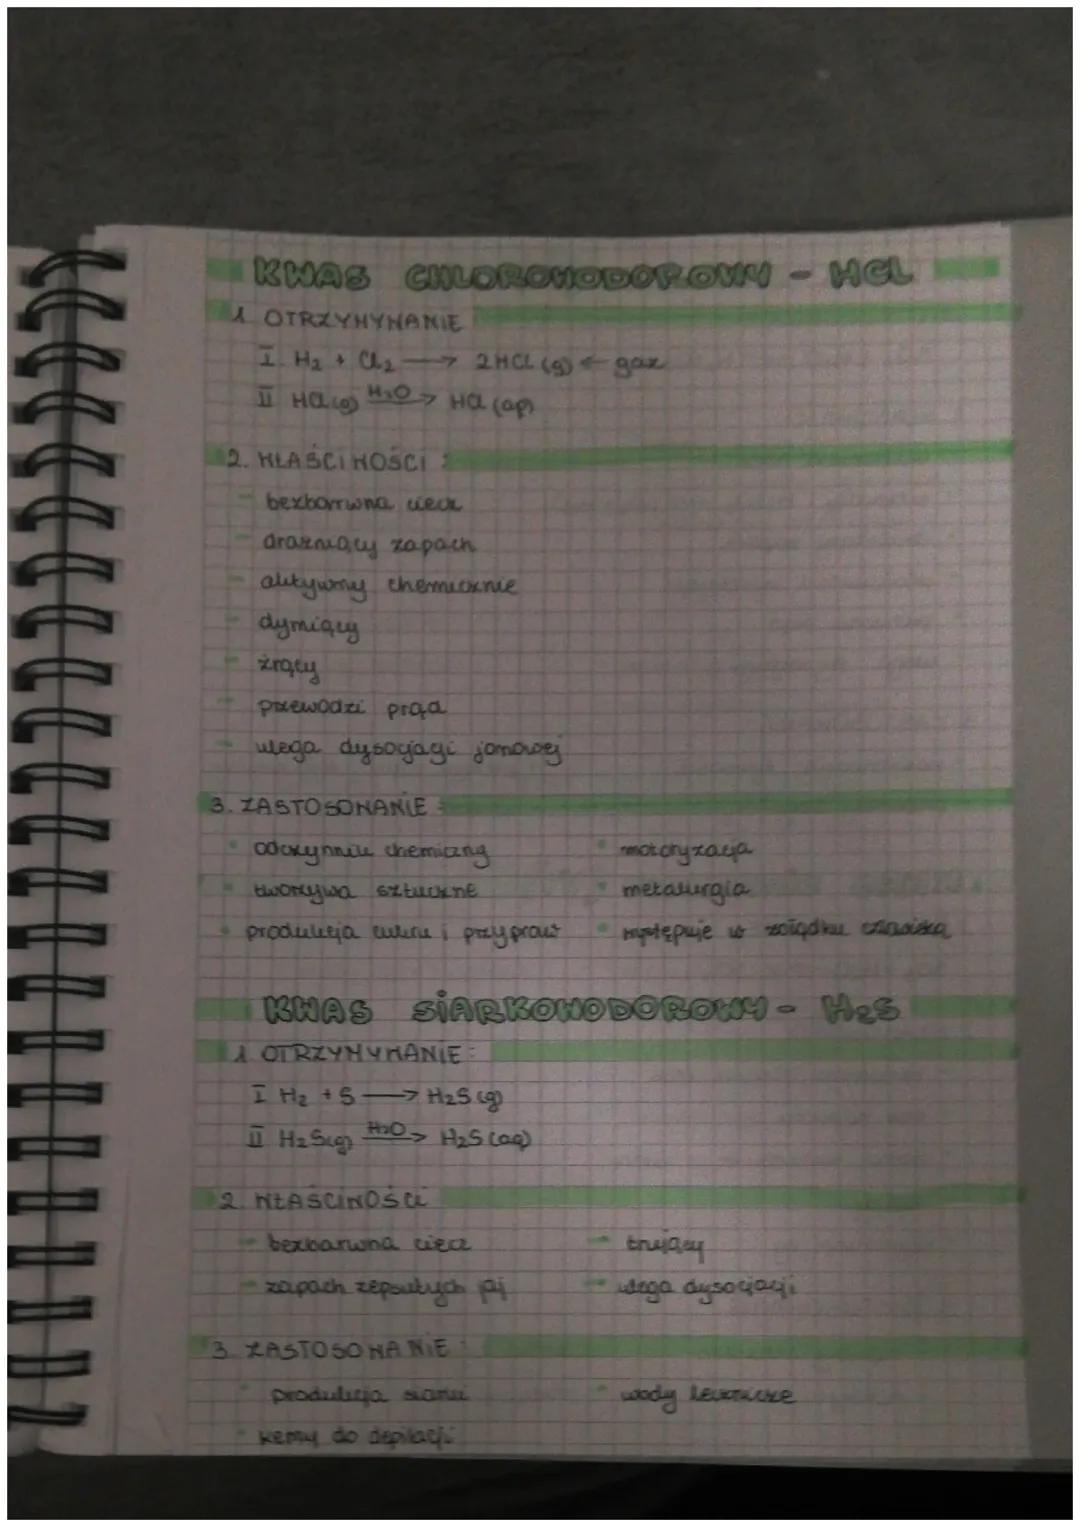 KWAS CHLOROWODOROWY - HCL
1. OTRZYMYWANIE
I. H₂ + Cl₂ ⟶ 2HCl (g) ← gaz
II HCl(g) H₂O→ HCl (aq)
2. WŁAŚCIWOŚCI:
- bezbarwna ciecz
- drażniący zapach
- aktywny chemicznie
- dymiący
- żrący
- przewodzi prąd
- ulega dysocjacji jonowej
3. ZASTOSOWANIE:
• odczynnik chemiczny • motoryzacja
• tworzywa sztuczne • metalurgia
• produkcja cukru i przypraw • występuje w żołądku człowieka
KWAS SIARKOWODOROWY - H₂S
1. OTRZYMYWANIE:
I H₂ + S ⟶ H₂S (g)
II H₂S(g) H₂O→ H₂S (aq)
2. WŁAŚCIWOŚCI
- bezbarwna ciecz - trujący
- zapach zepsutych jaj - ulega dysocjacji
3. ZASTOSOWANIE:
• produkcja siarki • wody lecznicze
• kremy do depilacji